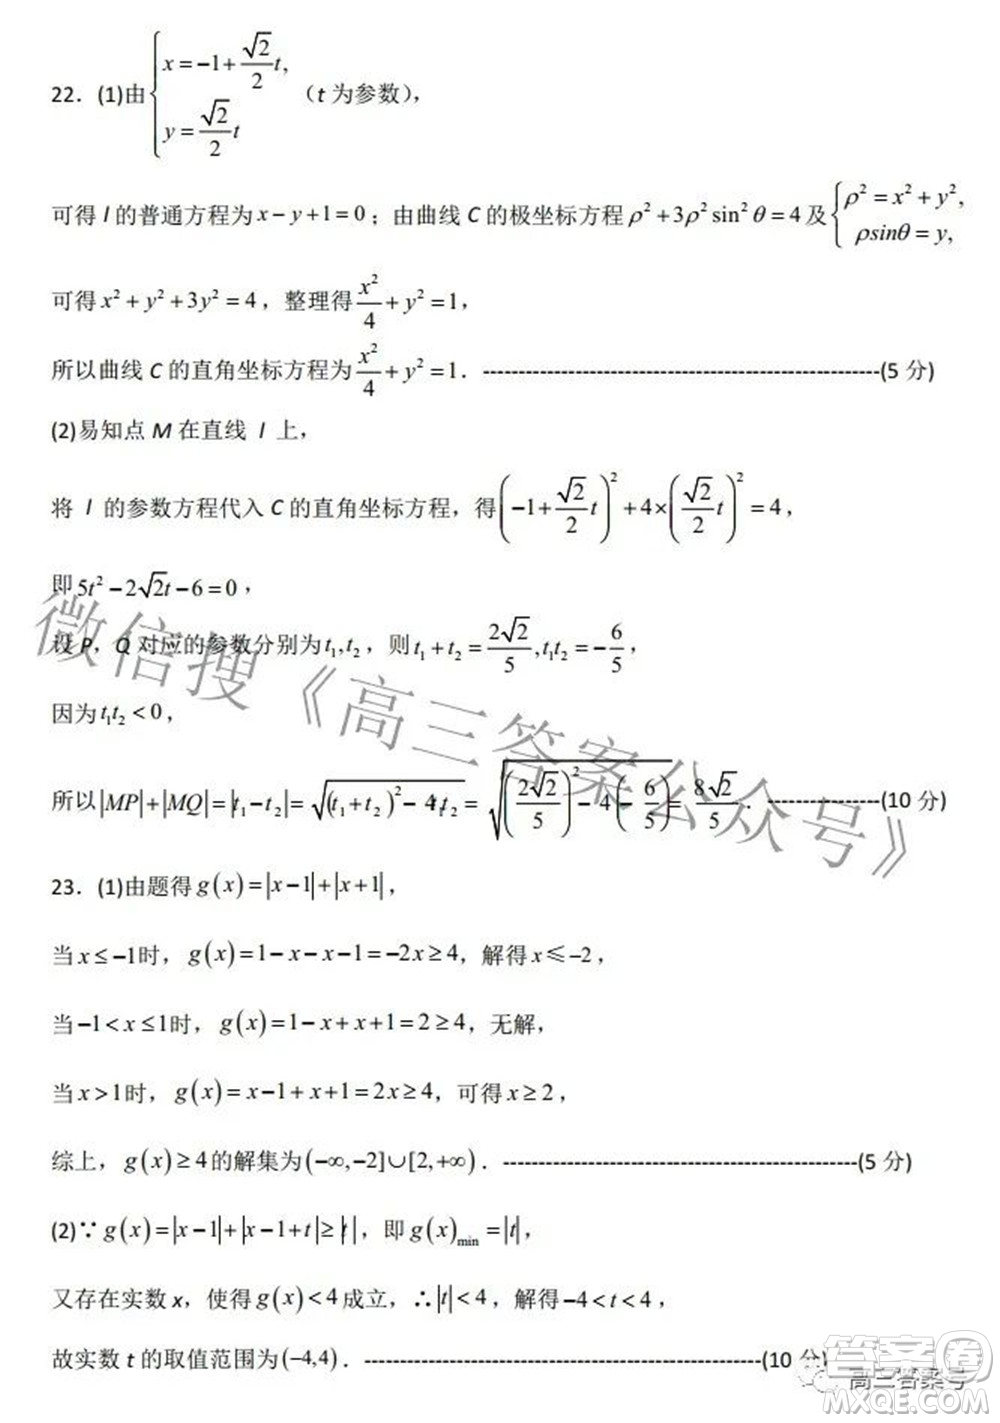 22．(1)由{x=−1+(√2/2)t, y=(√2/2)t （t 为参数），
可得 l 的普通方程为 x−y+1=0；由曲线 C 的极坐标方程 ρ²+3ρ²sin²θ=4 及{ρ²=x²+y², ρsinθ=y,
可得 x²+y²+3y²=4，整理得 x²/4+y²=1，
所以曲线 C 的直角坐标方程为 x²/4+y²=1．--------------------------------------------------------(5 分)
(2)易知点 M 在直线 l 上，
将 l 的参数方程代入 C 的直角坐标方程，得(−1+(√2/2)t)²+4×((√2/2)t)²=4，
即 5t²−2√2t−6=0，
设 P，Q 对应的参数分别为 t₁,t₂，则 t₁+t₂=2√2/5, t₁t₂=−6/5，
因为 t₁t₂<0，
所以|MP|+|MQ|=|t₁−t₂|=√((t₁+t₂)²−4t₁t₂)=√((2√2/5)²−4(−6/5))=8√2/5．----------------(10 分)
23．(1)由题得 g(x)=|x−1|+|x+1|，
当 x≤−1时，g(x)=1−x−x−1=−2x≥4，解得 x≤−2，
当−1<x≤1时，g(x)=1−x+x+1=2≥4，无解，
当 x>1时，g(x)=x−1+x+1=2x≥4，可得 x≥2，
综上，g(x)≥4 的解集为(−∞,−2]∪[2,+∞)．--------------------------------------------------(5 分)
(2)∵g(x)=|x−1|+|x−1+t|≥|t|，即 g(x)min=|t|，
又存在实数 x，使得 g(x)<4 成立，∴|t|<4，解得−4<t<4，
故实数 t 的取值范围为(−4,4)．--------------------------------------------------------(10 分)
微信搜《高三答案公众号》
答案圈
高三答案号